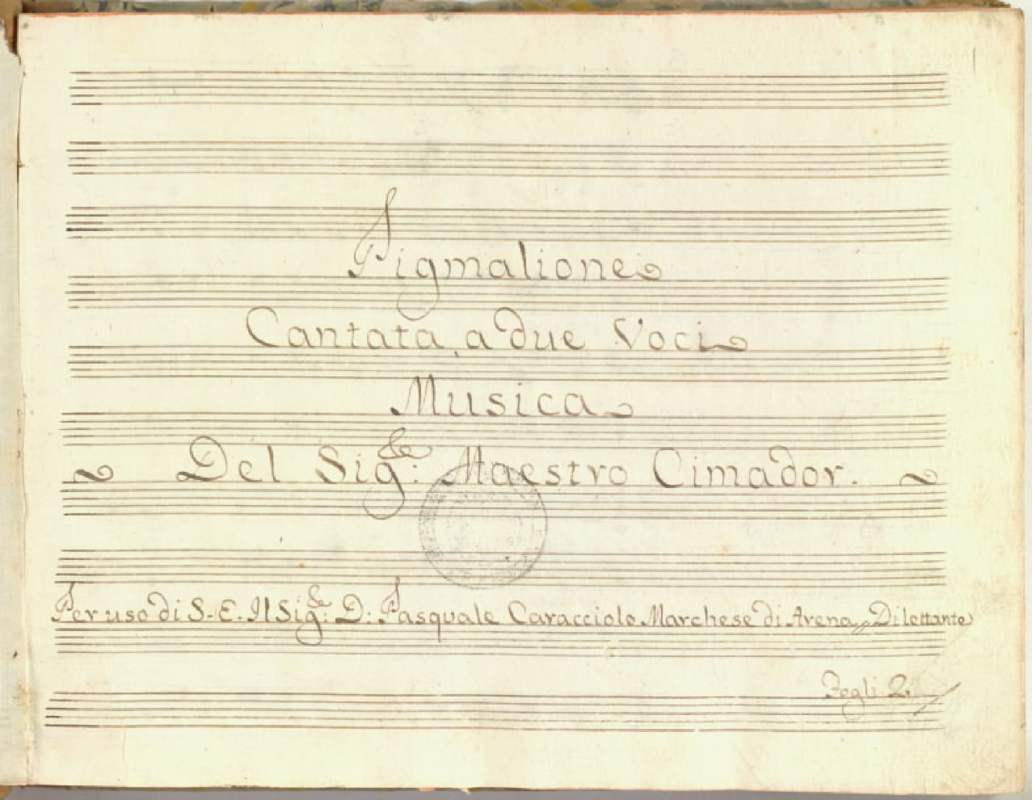 Pigmalione
Cantata, a due Voci
Musica
Del Sig.re: Maestro Cimador.
Per uso di S. E. Il Sig.re: D: Pasquale Caracciolo Marchese di Arena, Dilettante
Fogli